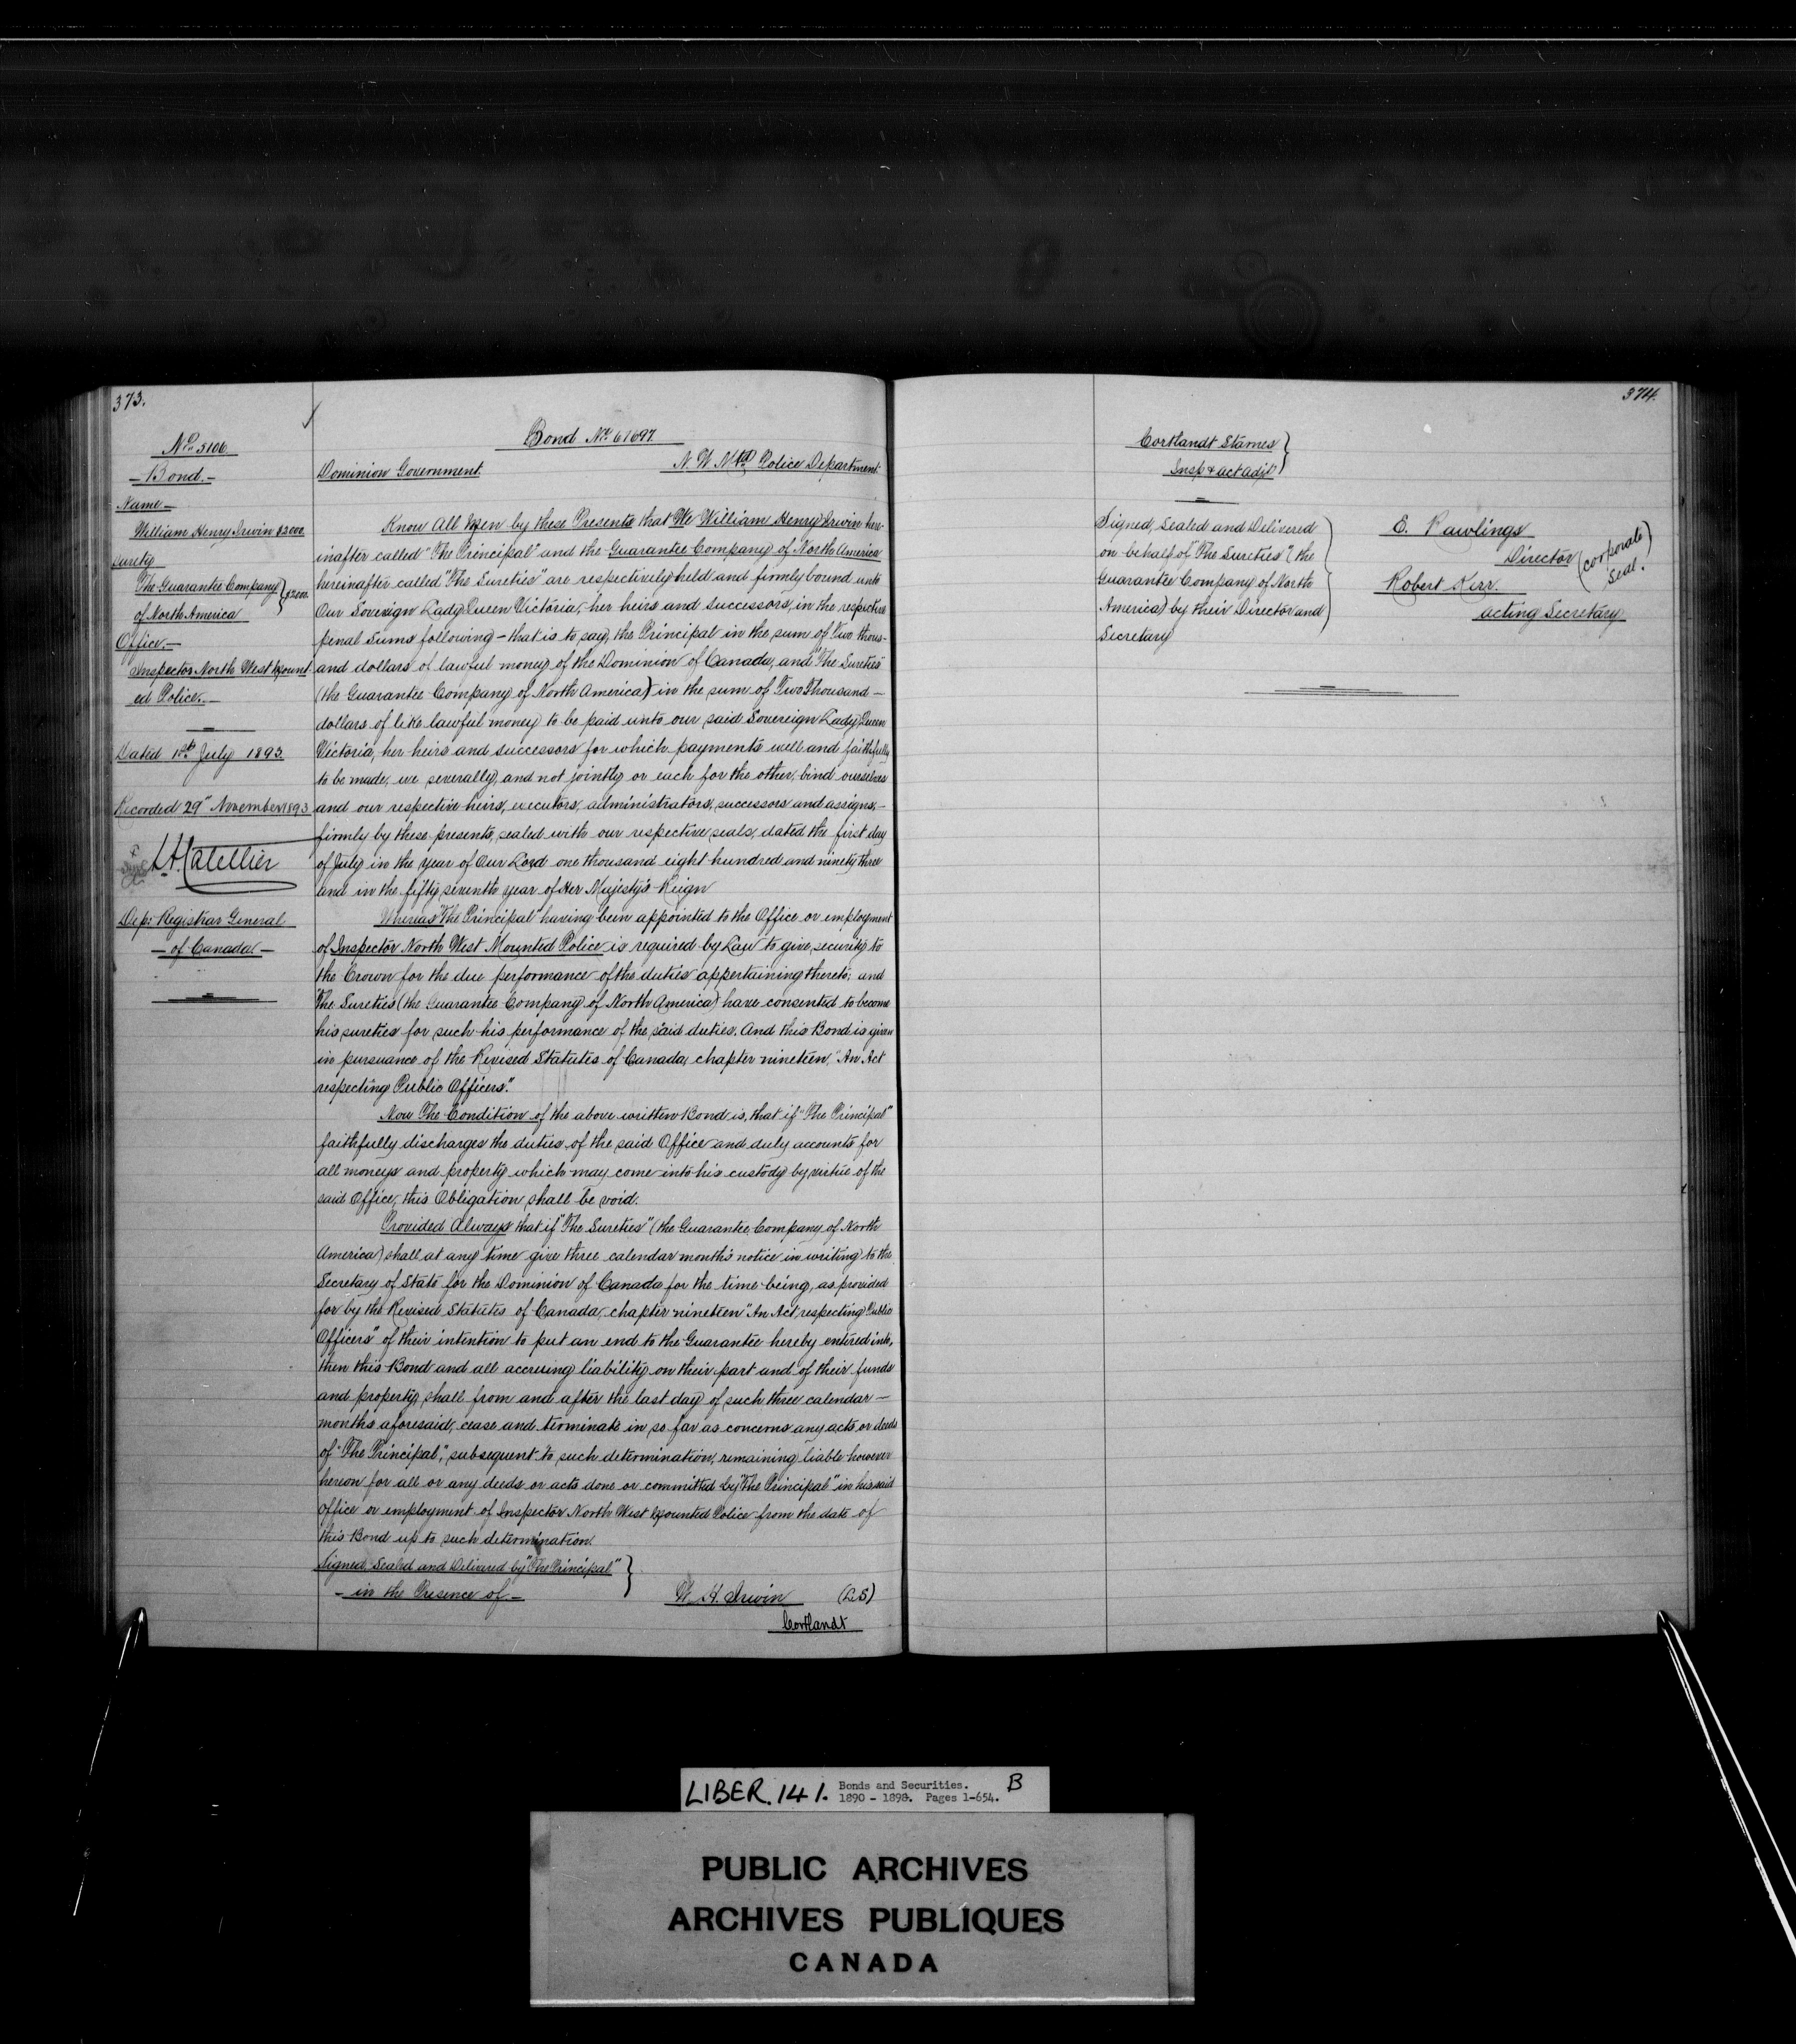 373.
No. 5106.
- Bond. -
Name -
William Henry Irwin $2000.
Surety
The Guarantee Company } $2000.
of North America
Office. -
Inspector North West Mount-
ed Police. -
Dated 1st July 1893.
Recorded 29" November 1893
L. A. Catellier
Dep: Registrar General
- of Canada -
Bond No. 61697.
Dominion Government. N. W. Mtd Police Department.
Know All Men by these Presents that We William Henry Irwin here-
inafter called "The Principal" and the Guarantee Company of North America
hereinafter called "The Sureties" are respectively held and firmly bound unto
Our Sovereign Lady Queen Victoria, her heirs and successors, in the respective
penal sums following - that is to say, the Principal in the sum of Two thous-
and dollars of lawful money of the Dominion of Canada, and "The Sureties"
(the Guarantee Company of North America) in the sum of Two Thousand -
dollars of like lawful money to be paid unto our said Sovereign Lady Queen
Victoria, her heirs and successors for which payments well and faithfully
to be made, we severally, and not jointly or each for the other, bind ourselves
and our respective heirs, executors, administrators, successors and assigns, -
firmly by these presents, sealed with our respective seals, dated the first day
of July in the year of Our Lord one thousand eight hundred and ninety three
and in the fifty seventh year of Her Majesty's Reign
Whereas "The Principal" having been appointed to the Office or employment
of Inspector North West Mounted Police is required by Law to give security to
the Crown for the due performance of the duties appertaining thereto; and
"The Sureties (the Guarantee Company of North America) have consented to become
his sureties for such his performance of the said duties. And this Bond is given
in pursuance of the Revised Statutes of Canada, chapter nineteen, "An Act
respecting Public Officers".
Now The Condition of the above written Bond is, that if "The Principal"
faithfully discharges the duties of the said Office and duly accounts for
all moneys and property which may come into his custody by virtue of the
said Office, this Obligation shall be void.
Provided Always that if "The Sureties" (the Guarantee Company of North
America) shall at any time give three calendar month's notice in writing to the
Secretary of State for the Dominion of Canada for the time being, as provided
for by the Revised Statutes of Canada, chapter nineteen "An Act respecting Public
Officers" of their intention to put an end to the Guarantee hereby entered into,
then this Bond and all accruing liability on their part and of their funds
and property, shall from and after the last day of such three calendar -
months aforesaid, cease and terminate in so far as concerns any acts or deeds
of "The Principal", subsequent to such determination, remaining liable however
hereon for all or any deeds or acts done or committed by "The Principal" in his said
office or employment of Inspector North West Mounted Police from the date of
this Bond up to such determination.
Signed, Sealed and Delivered by "The Principal" }
- in the Presence of - W. H. Irwin (L.S)
Cortlandt
374.
Cortlandt Starnes }
Insp & act adjt
Signed, Sealed and Delivered
on behalf of "The Sureties" (the
Guarantee Company of North
America) by their Director and
Secretary
E. Rawlings
Director (corporate
seal.)
Robert Kerr.
acting Secretary
LIBER. 141. Bonds and Securities. B
1890 - 1898. Pages 1-654.
PUBLIC ARCHIVES
ARCHIVES PUBLIQUES
CANADA